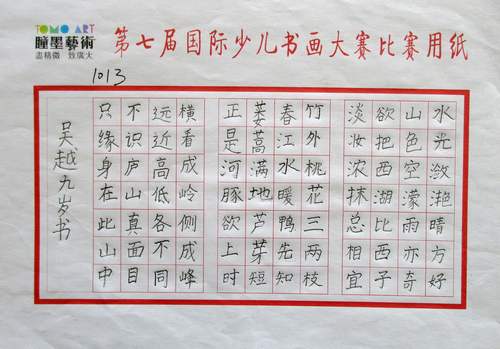 TOMO ART
瞳墨藝術
盡精微 致廣大
第七届国际少儿书画大赛比赛用纸
1013
水光潋滟晴方好
山色空濛雨亦奇
欲把西湖比西子
淡妆浓抹总相宜
竹外桃花三两枝
春江水暖鸭先知
蒌蒿满地芦芽短
正是河豚欲上时
横看成岭侧成峰
远近高低各不同
不识庐山真面目
只缘身在此山中
吴越九岁书